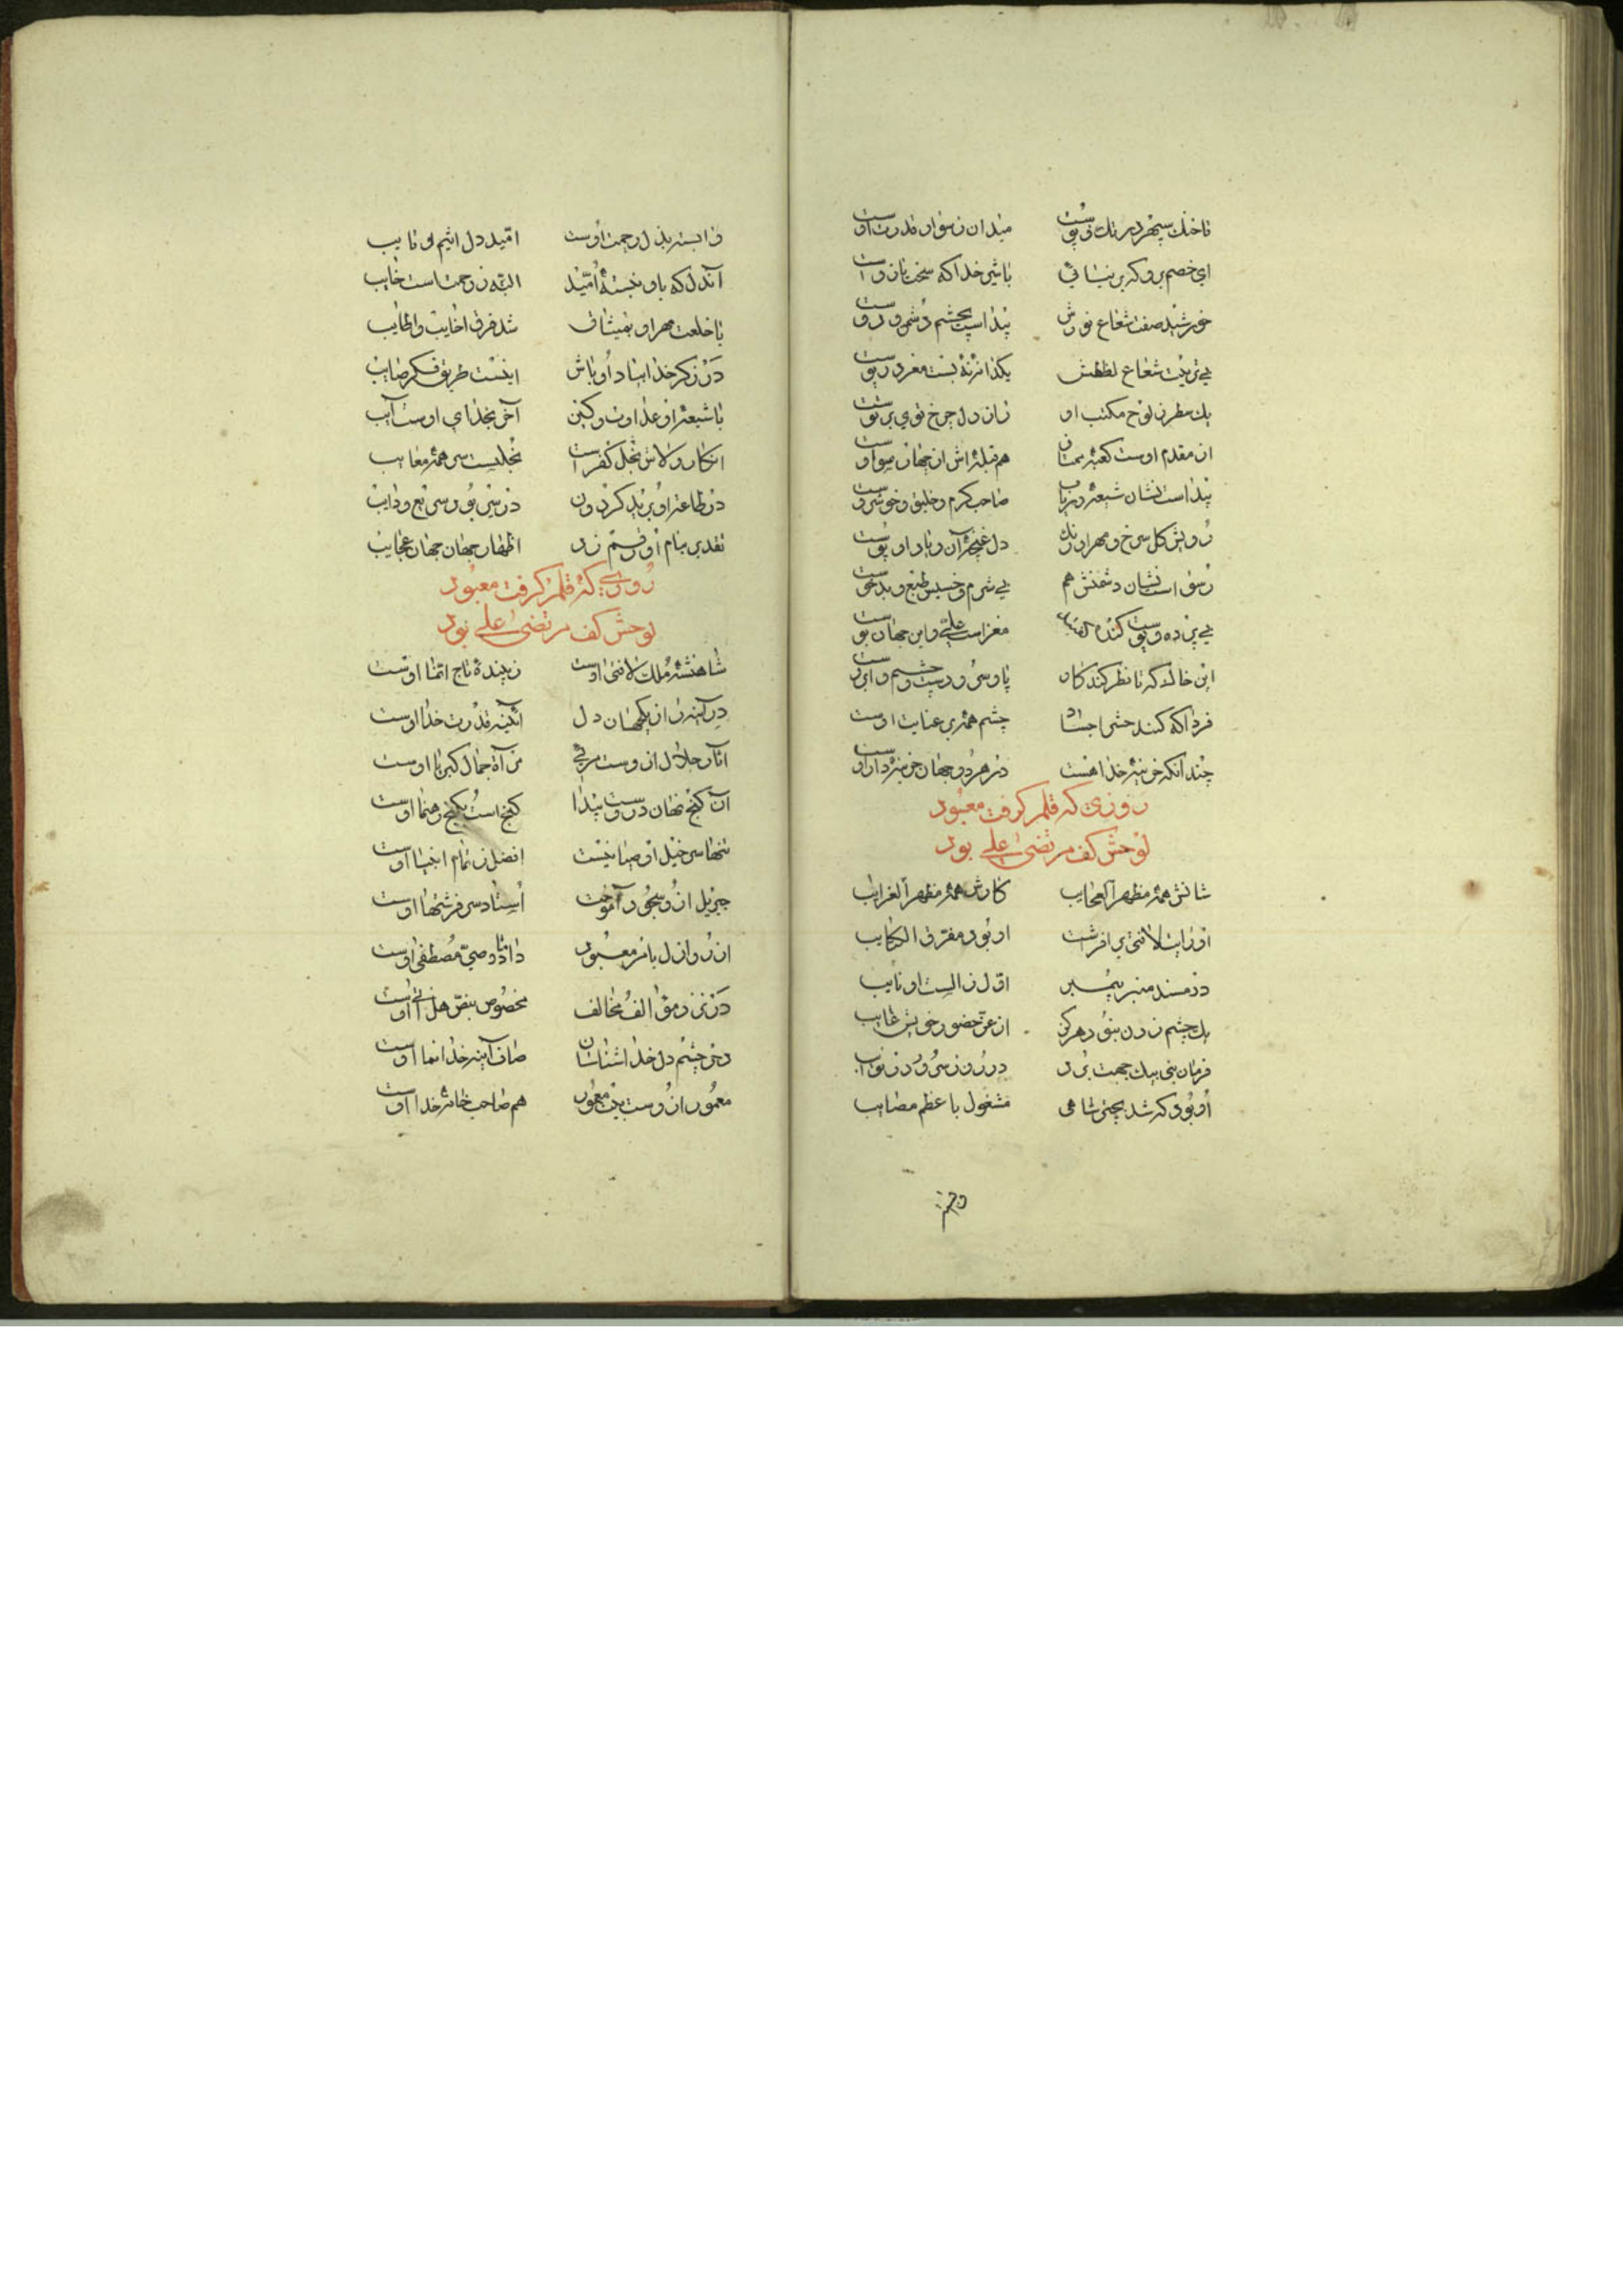 تا خنک سپهر در تک و پوست میدان ز سوار قدرت اوست
ای خصم برو که بر نیائی با شیر خدا که سخت بازوست
خورشید صفت شعاع نورش پیداست بچشم دشمن و دوست
بی تربیت شعاع لطفش یکدانه نبست مغز در پوست
یک لوح مکتب او زان دل چرخ توی بر توست
از مقدم اوست کعبه هم قبله اش از جهان
پیداست نشان شیعه صاحب کرم و خلیق و خوشروست
رویش گل سرخ و مهر او رنگ دل غنچه آن و یاد او بوست
رسواست نشان دشمنش هم بی شرم و خسیس طبع و بدخوست
بی پرده و پوست کنده مغز است علی و این جهان پوست
این خاک که تا نظر کند کار پا و سر و دست و چشم و ابروست
فردا که کنند حشر اجساد چشم همه بر عنایت اوست
چندانکه خزینه خدا هست در هر دو جهان خزینه دار اوست
روزی که قلم گرفت معبود
لوحش کف مرتضی علی بود
شانش همه مظهر العجایب کارش همه مظهر الغرایب
او رایت لافتی بر افراشت او بود مفرق الکتایب
در مسند منبر پیمبر اول ز الست او نایب
یک چشم زدن نبود هرگز از عز حضور خویش غایب
فرمان نبی بیک جهت برد در روز سرور و در نوایب
او بود که شد بچنین شاهی مشغول با عظم مصایب
وابسته
وابسته بذیل رحمت اوست امید دل اثیم و تایب
آندل که باو نبسته امید البته ز رحمتست خایب
با خلعت مهر او بیفشان شد فرق اخایب و اطایب
در ذکر خدا بیاد او باش اینست طریق فکر صایب
با شیعه او عداوت و کین آخر بخدای اوست آیب
انکار ولاش نجل کفر است نجلیست سر همه معایب
در طاعت او برند گردون در
نقدی بنام او رقم زد اظهار جهان جهان عجایب
روزی که قلم گرفت معبود
لوحش کف مرتضی علی بود
شاهنشه ملک لافتی اوست زیبنده تاج انما اوست
در آینه دل آئینه قدرت خدا اوست
آثار جلال از اوست مرئی مرآة جمال کبریا اوست
آن گنج نهان در اوست پیدا گنج است بگنج رهنما اوست
تنها سر خیل اوصیا نیست افضل ز تمام انبیا اوست
جبریل از او سجود آموخت استاد سر فرشتها اوست
از روز ازل بامر معبود داماد و وصی مصطفی اوست
در نزد موالف و مخالف مخصوص بنص هل اتی اوست
در چشم دل خدا شناسان صاف آینه خدا نما اوست
معمور از اوست بیت معمور هم صاحب خانه خدا اوست